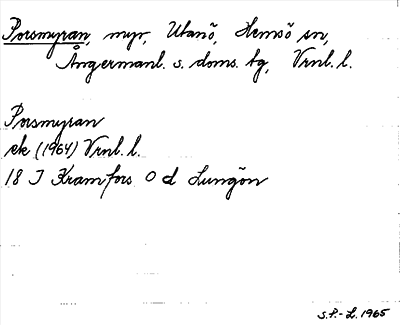 Porsmyran, myr, Utanö, Hemsö sn,
Ångermanl. s. doms. tg, Vrnl. l.
Porsmyran
ek (1964) Vrnl. l.
18 J Kramfors O d Lungön
S.P.-L. 1965